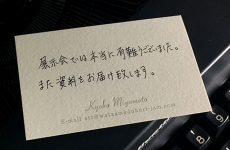 展示会では本当に有難うございました。
また資料をお届け致します。
Kyoko Miyamoto
E-mail